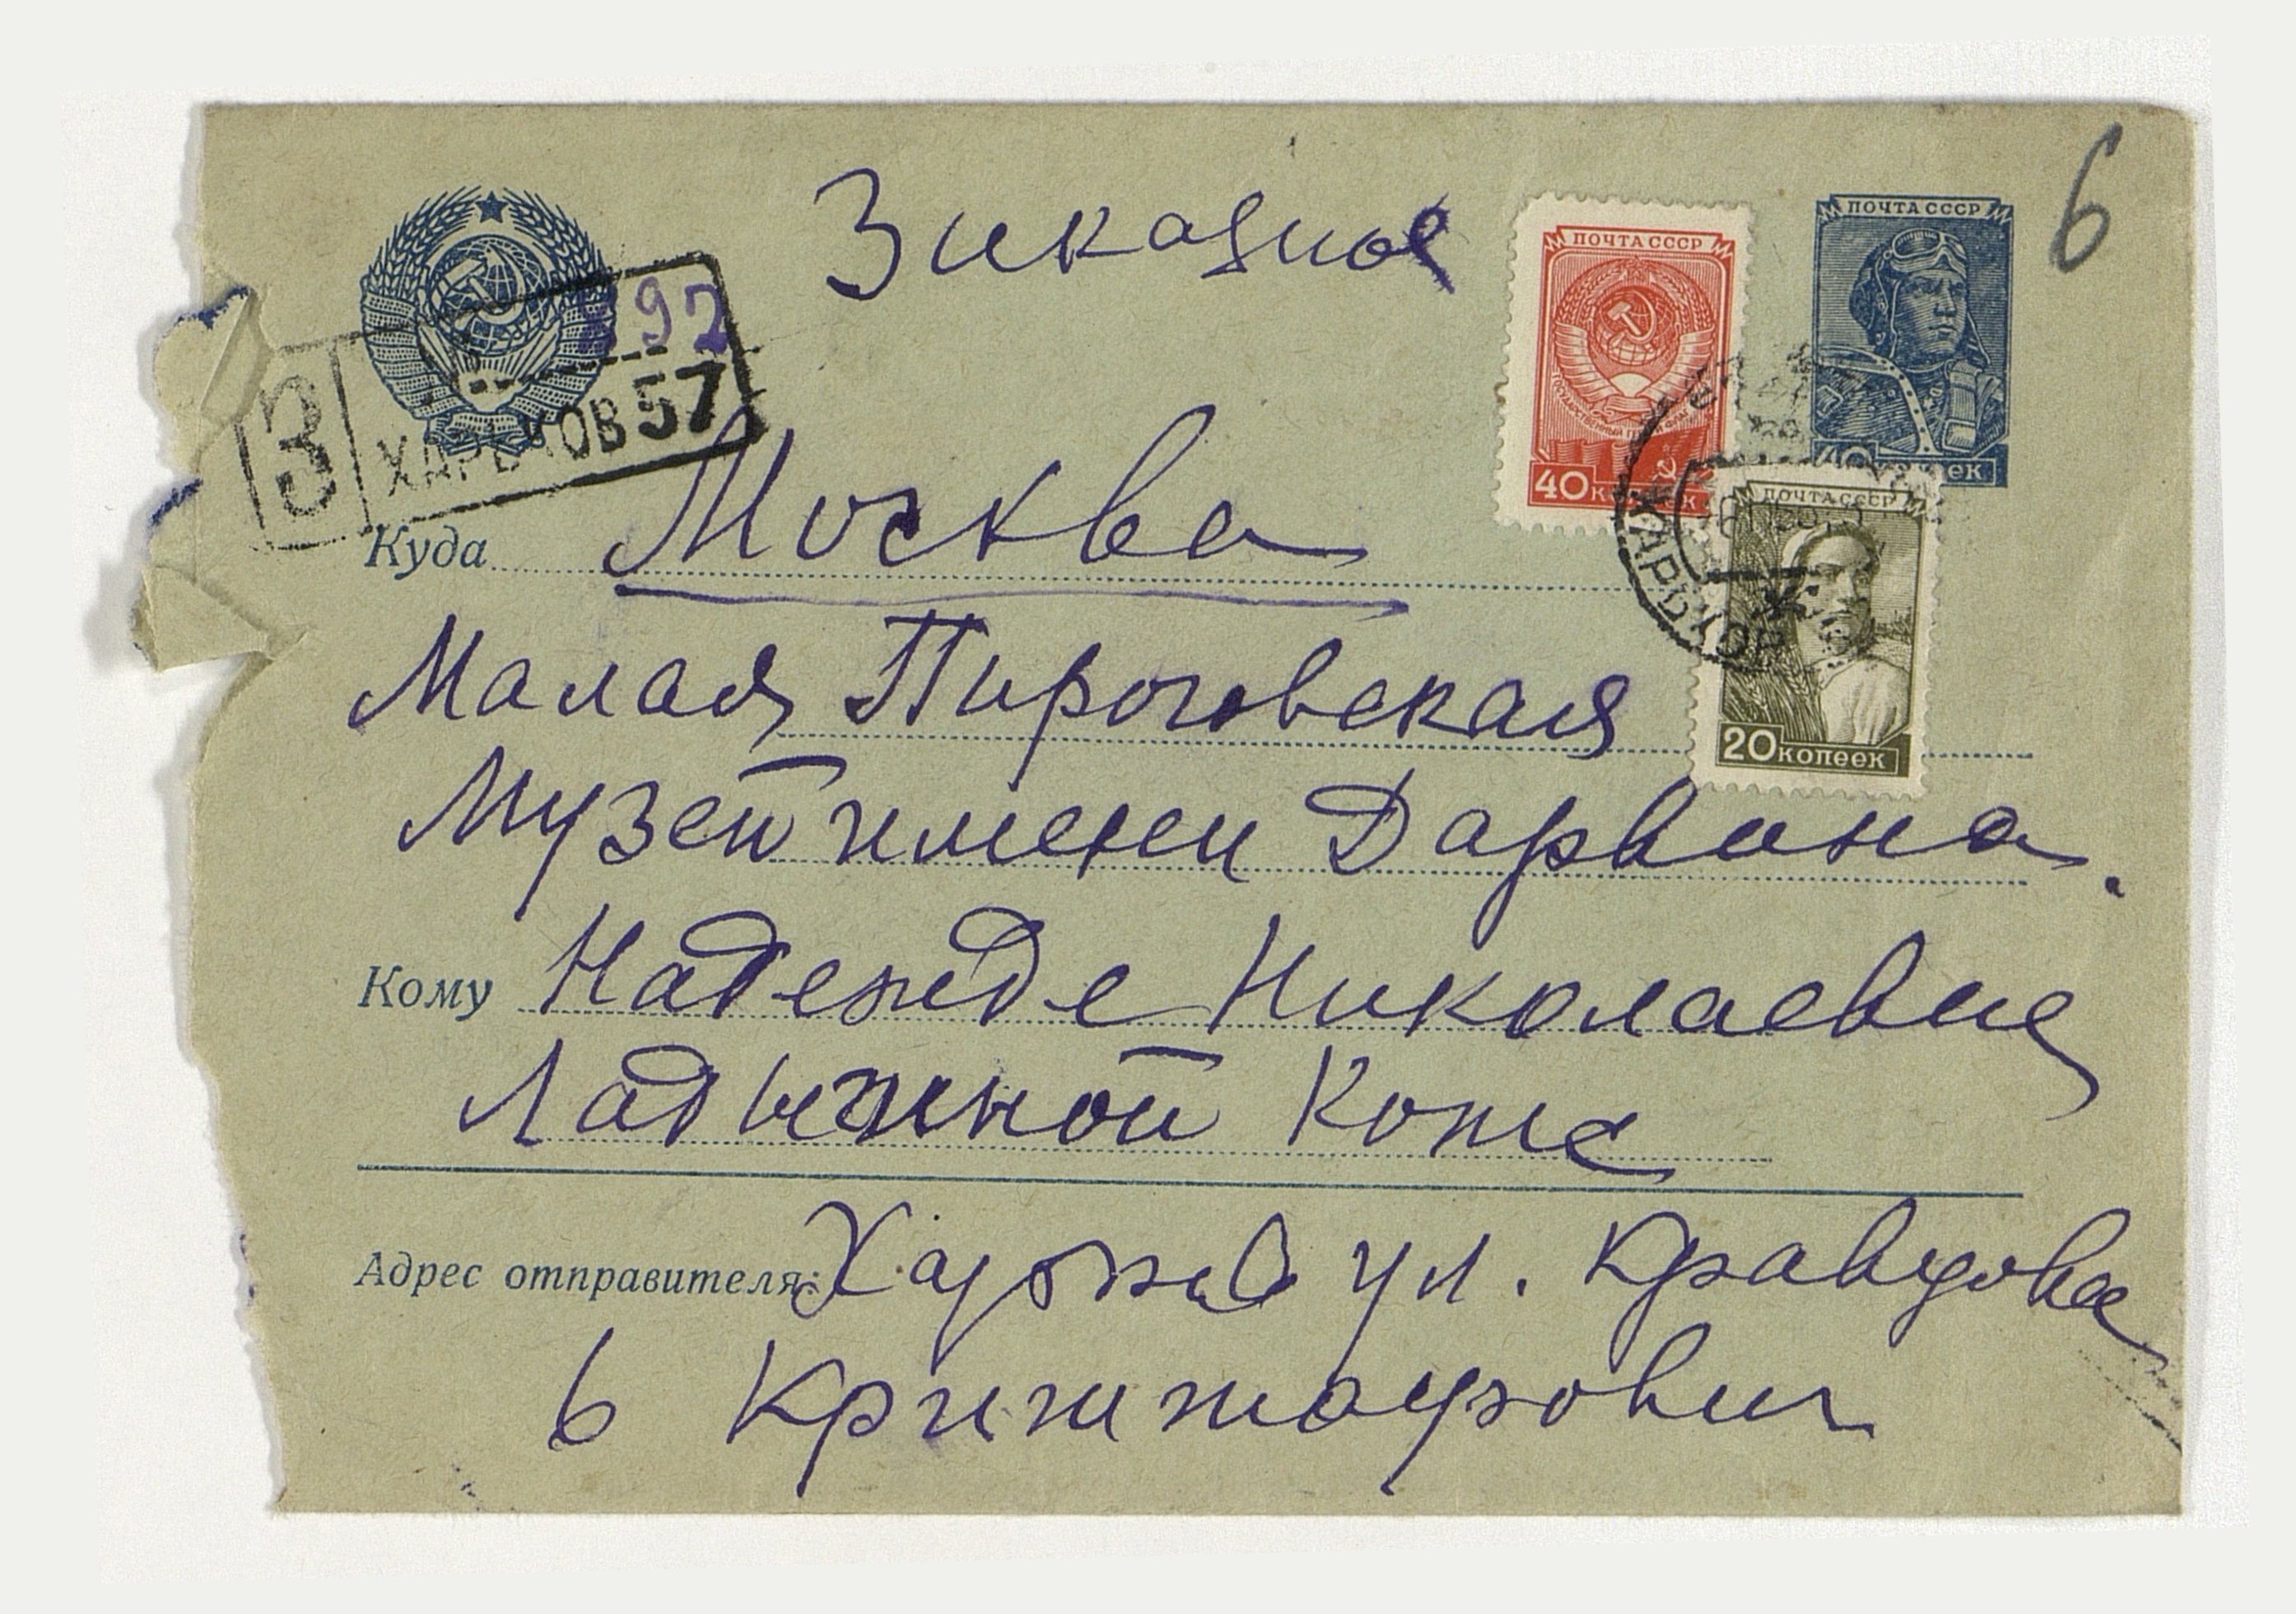 6
Заказное
ПОЧТА СССР
ПОЧТА СССР
92
З
ХАРЬКОВ 57
40 копеек
40 копеек
Куда Москва
ПОЧТА СССР
ХАРЬКОВ
Малая Пироговская
20 копеек
Музей имени Дарвина.
Кому Надежде Николаевне
Ладыжной Котс
Адрес отправителя: Харьков ул. Кравцова
6 Криштафович